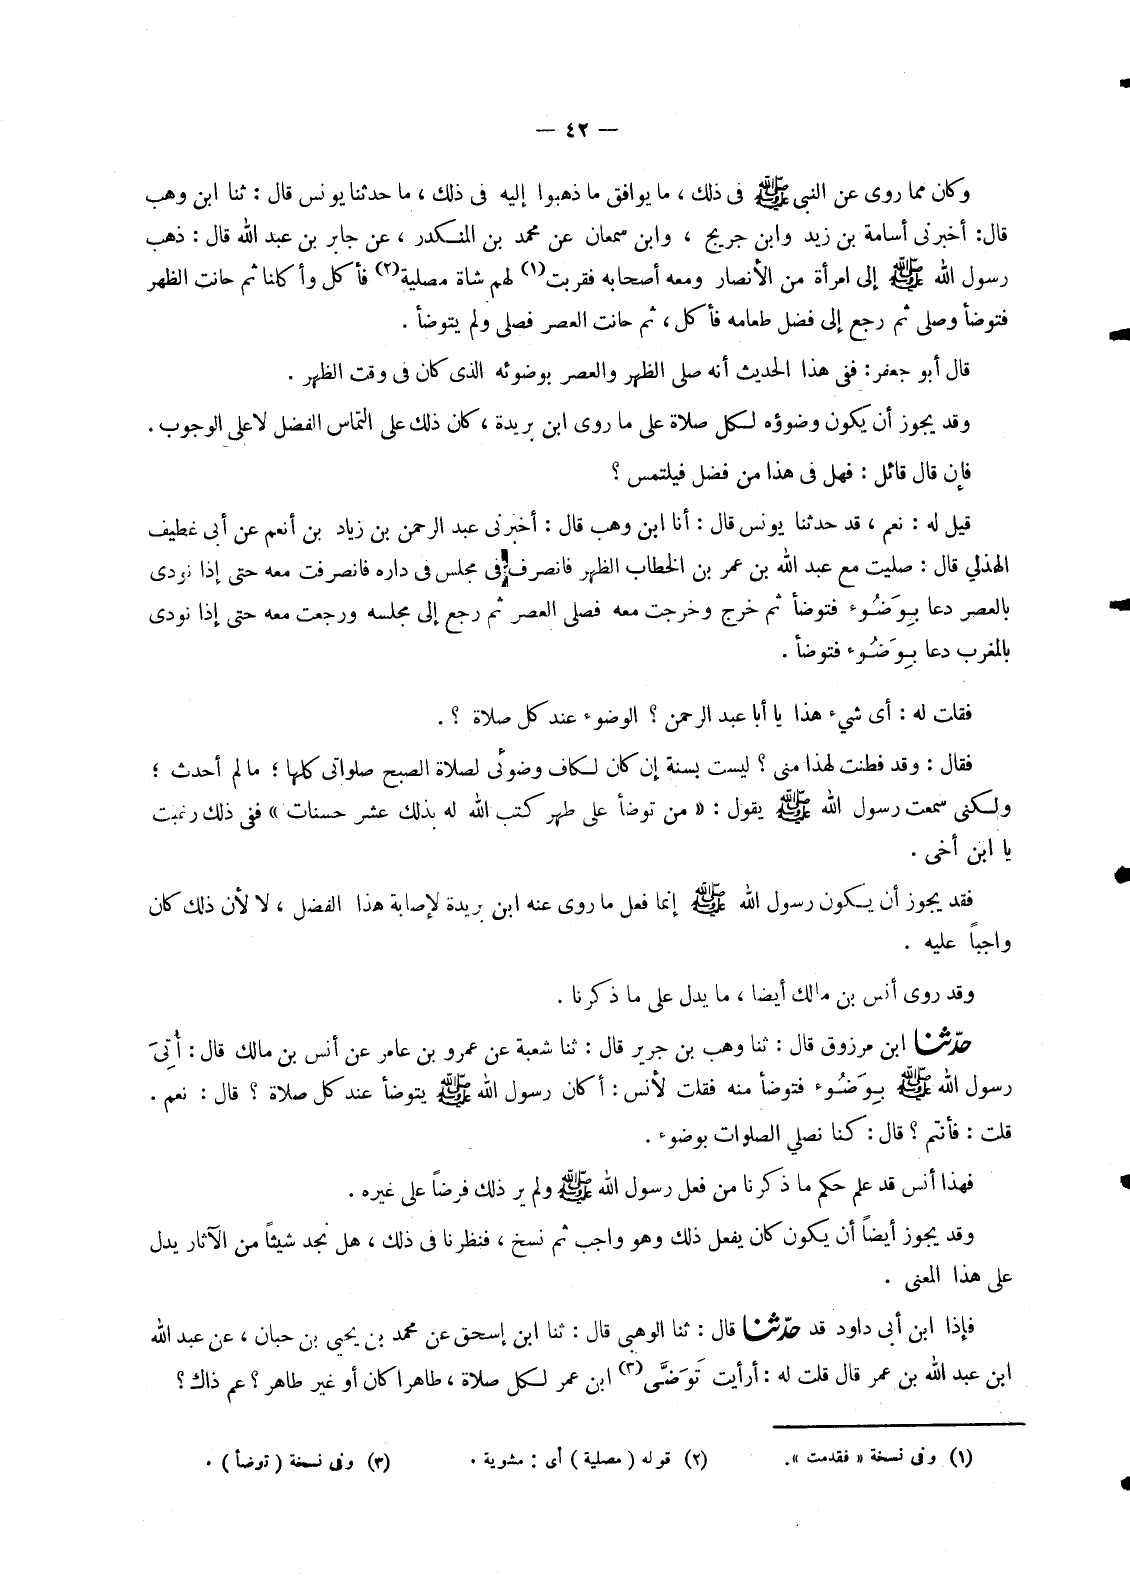 — ٤٢ —
وكان مما روى عن النبى ﷺ فى ذلك ، ما يوافق ما ذهبوا إليه فى ذلك ، ما حدثنا يونس قال : ثنا ابن وهب
قال: أخبرنى أسامة بن زيد وابن جريج ، وابن سمعان عن محمد بن المنكدر ، عن جابر بن عبد الله قال : ذهب
رسول الله ﷺ إلى امرأة من الأنصار ومعه أصحابه فقربت(١) لهم شاة مصلية(٢) فأكل وأكلنا ثم حانت الظهر
فتوضأ وصلى ثم رجع إلى فضل طعامه فأكل ، ثم حانت العصر فصلى ولم يتوضأ .
قال أبو جعفر: ففى هذا الحديث أنه صلى الظهر والعصر بوضوئه الذى كان فى وقت الظهر .
وقد يجوز أن يكون وضوؤه لكل صلاة على ما روى ابن بريدة ، كان ذلك على التماس الفضل لا على الوجوب .
فإن قال قائل : فهل فى هذا من فضل فيلتمس ؟
قيل له : نعم ، قد حدثنا يونس قال : أنا ابن وهب قال : أخبرنى عبد الرحمن بن زياد بن أنعم عن أبى غطيف
الهذلي قال : صليت مع عبد الله بن عمر بن الخطاب الظهر فانصرف فى مجلس فى داره فانصرفت معه حتى إذا نودى
بالعصر دعا بِوَضُوء فتوضأ ثم خرج وخرجت معه فصلى العصر ثم رجع إلى مجلسه ورجعت معه حتى إذا نودى
بالمغرب دعا بِوَضُوء فتوضأ .
فقلت له : أى شيء هذا يا أبا عبد الرحمن ؟ الوضوء عند كل صلاة ؟ .
فقال : وقد فطنت لهذا منى ؟ ليست بسنة إن كان لكاف وضوئى لصلاة الصبح صلواتى كلها ؛ ما لم أحدث ؛
ولكنى سمعت رسول الله ﷺ يقول : « من توضأ على طهر كتب الله له بذلك عشر حسنات » ففى ذلك رغبت
يا ابن أخى .
فقد يجوز أن يكون رسول الله ﷺ إنما فعل ما روى عنه ابن بريدة لإصابة هذا الفضل ، لا لأن ذلك كان
واجباً عليه .
وقد روى أنس بن مالك أيضا ، ما يدل على ما ذكرنا .
حدّثنا ابن مرزوق قال : ثنا وهب بن جرير قال : ثنا شعبة عن عمرو بن عامر عن أنس بن مالك قال : أُتِىَ
رسول الله ﷺ بِوَضُوء فتوضأ منه فقلت لأنس : أكان رسول الله ﷺ يتوضأ عند كل صلاة ؟ قال : نعم .
قلت : فأنتم ؟ قال : كنا نصلي الصلوات بوضوء .
فهذا أنس قد علم حكم ما ذكرنا من فعل رسول الله ﷺ ولم ير ذلك فرضاً على غيره .
وقد يجوز أيضاً أن يكون كان يفعل ذلك وهو واجب ثم نسخ ، فنظرنا فى ذلك ، هل نجد شيئاً من الآثار يدل
على هذا المعنى .
فإذا ابن أبى داود قد حدّثنا قال : ثنا الوهبى قال : ثنا ابن إسحق عن محمد بن يحيى بن حبان ، عن عبد الله
ابن عبد الله بن عمر قال قلت له : أرأيت تَوَضَّى(٣) ابن عمر لكل صلاة ، طاهرا كان أو غير طاهر ؟ عم ذاك ؟
(١) وفى نسخة « فقدمت ». (٢) قوله ( مصلية ) أى : مشوية . (٣) وفى نسخة ( توضأ ) .